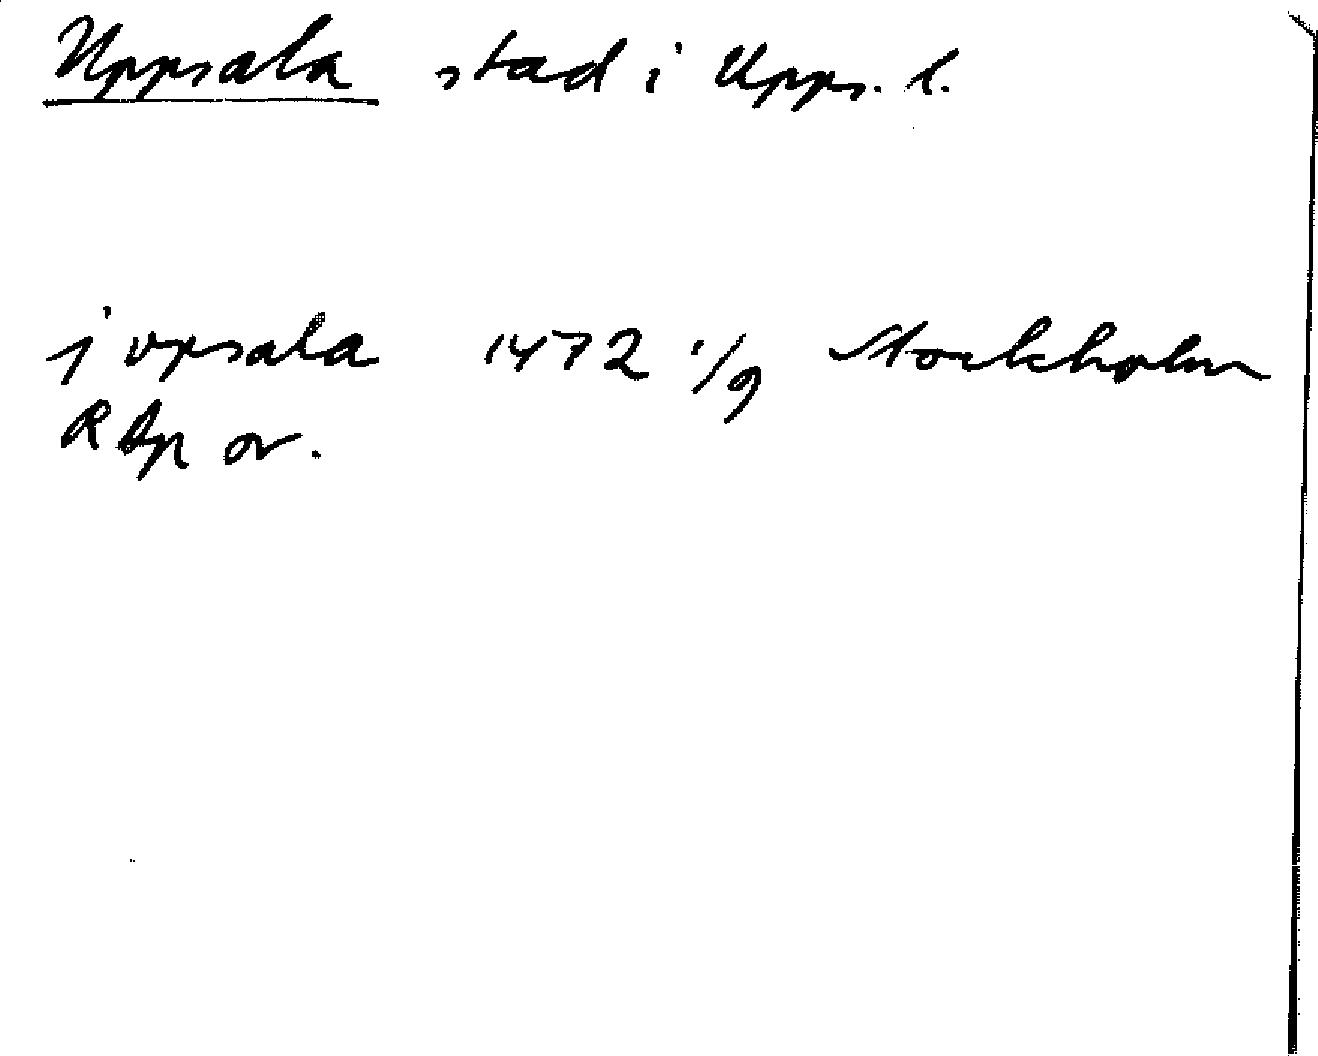 Uppsala stad i Upps. l.
j vpsala 1472 1/9 Stockholm
RAp or.